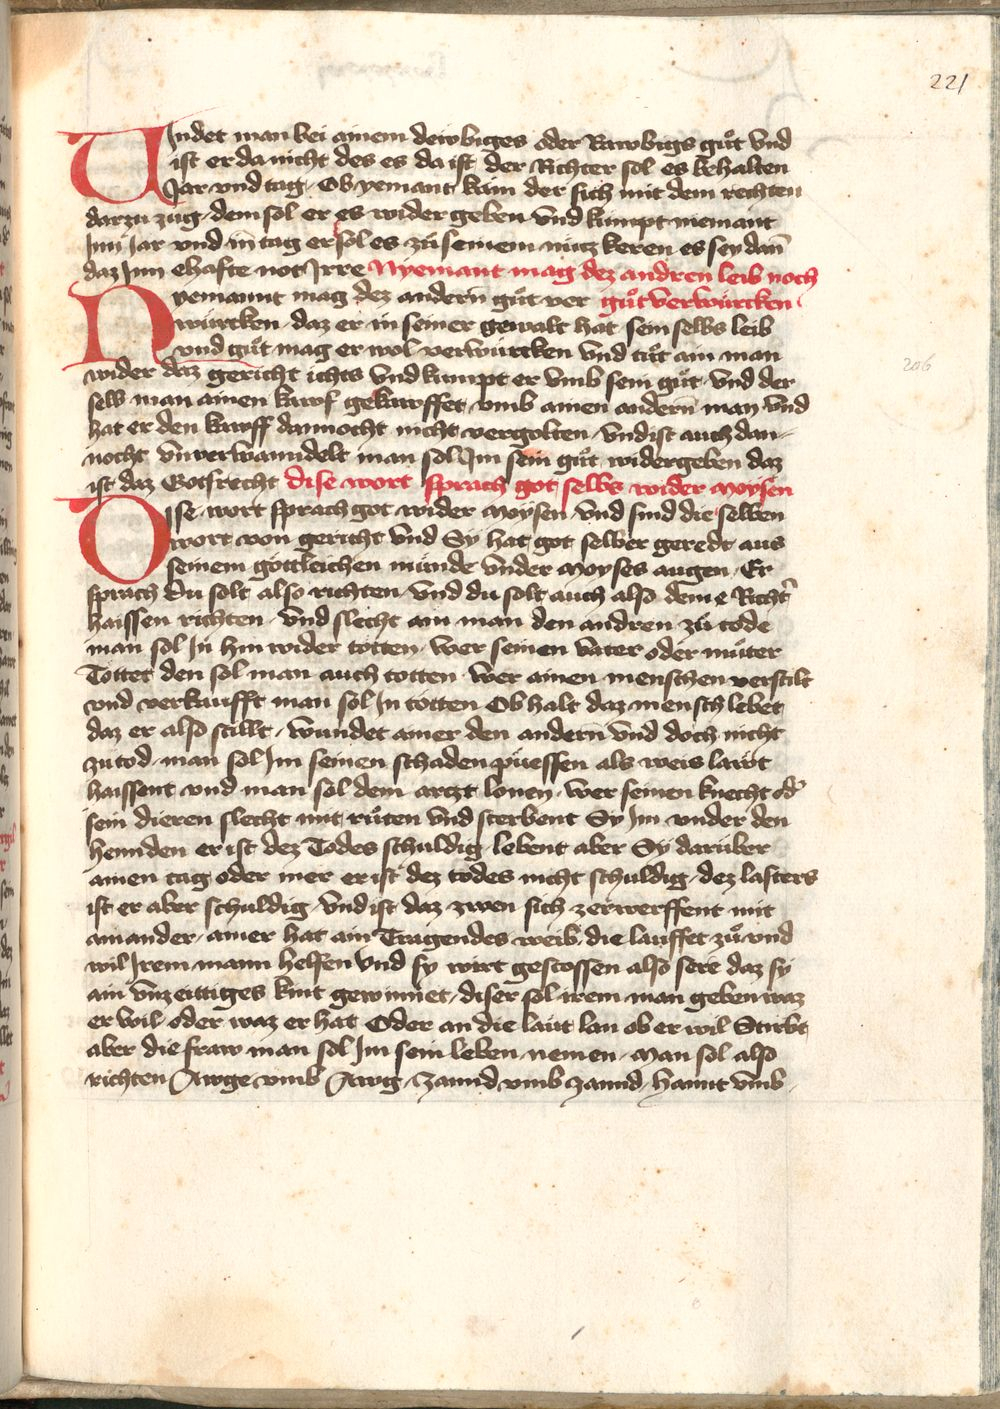 221
Vindet man bei ainem dewbiges oder Rawbigs gůt vnd
ist er da nicht des es da ist der Richter sol es behalten
Jar vnd tag / Ob yemant käm der sich mit dem rechten
darzu zug / dem sol er es wider geben vnd kumpt niemant
Inn Jar vnd in tag er sol es zu seinem nücz keren es sey dan̄
daz Inn ehafte not Irre Nyemant mag dez andren leib noch
Nyemannt mag dez andern gůt ver gůt verwürcken
würcken / daz er in seiner gewalt hat sein selbs leib
vnd gůt mag er wol verwürcken vnd tůt ain man
wider daz gericht ichts vnd kumpt er vmb sein gůt / vnd der
selb man ainen kauf gekawffet / vmb ainen andern̄ man vnd
hat er den kawff dannocht nicht vergolten / vnd ist auch dan-
nocht vnverwanndelt man sol Im sein gůt widergeben daz
ist daz Gotsrecht dise wort sprach got selbs wider moysen
206
Dise wort sprach got wider moÿsen / vnd sind die selben
wort von gericht vnd Sy hat got selber geredt aus
seinem göttleichen munde vnder moyses augen / Er
sprach Du solt also richten / vnd du solt auch also dein e Richt̄
haissen richten / vnd slecht ain man den andren zu tode
man sol In hin wider totten / wer seinen vater oder muter
Tottet den sol man auch totten / wer ainen menschen verstilt
vnd verkaufft man sol In totten Ob halt daz mensch lebet
daz er also stillt / wundet ainer den andern̄ vnd doch nicht
zu tod / man sol Im seinen schaden püessen als weis lawt
haissent vnd man sol dem arczt lonen / wer seinen knecht od̄
sein dieren slecht mit růten vnd sterbent Sy Im vnder den
hennden er ist dez Todes schuldig / lebent aber Sy darüber
ainen tag oder mer er ist dez todes nicht schuldig / dez lasters
ist er aber schuldig / vnd ist daz zwen sich zerwerffent mit
ainander / ainer hat ain Tragendes weib die lauffet zů vnd
wil Irem mann helfen vnd sy wirt gestossen also sere daz sy
ain vnzeittiges kint gewinnet / diser sol irem man geben waz
er wil / oder waz er hat Oder an die laüt lan ob er wil Stirbt
aber die fraw man sol Im sein leben nemen / man sol also
richten Awge vmb Awg / zannd vmb zannd / hannt vmb